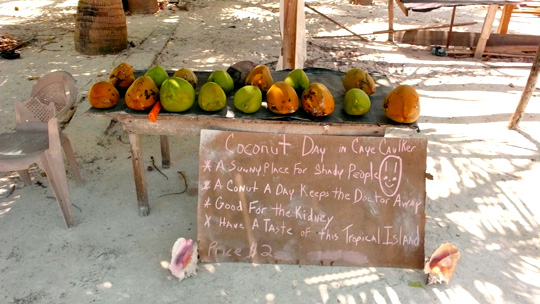 Coconut Day in Caye Caulker
* A Sunny Place For Shady People
* A Conut A Day Keeps the Doctor Away
* Good For the Kidney
* Have A Taste of this Tropical Island
Price $2